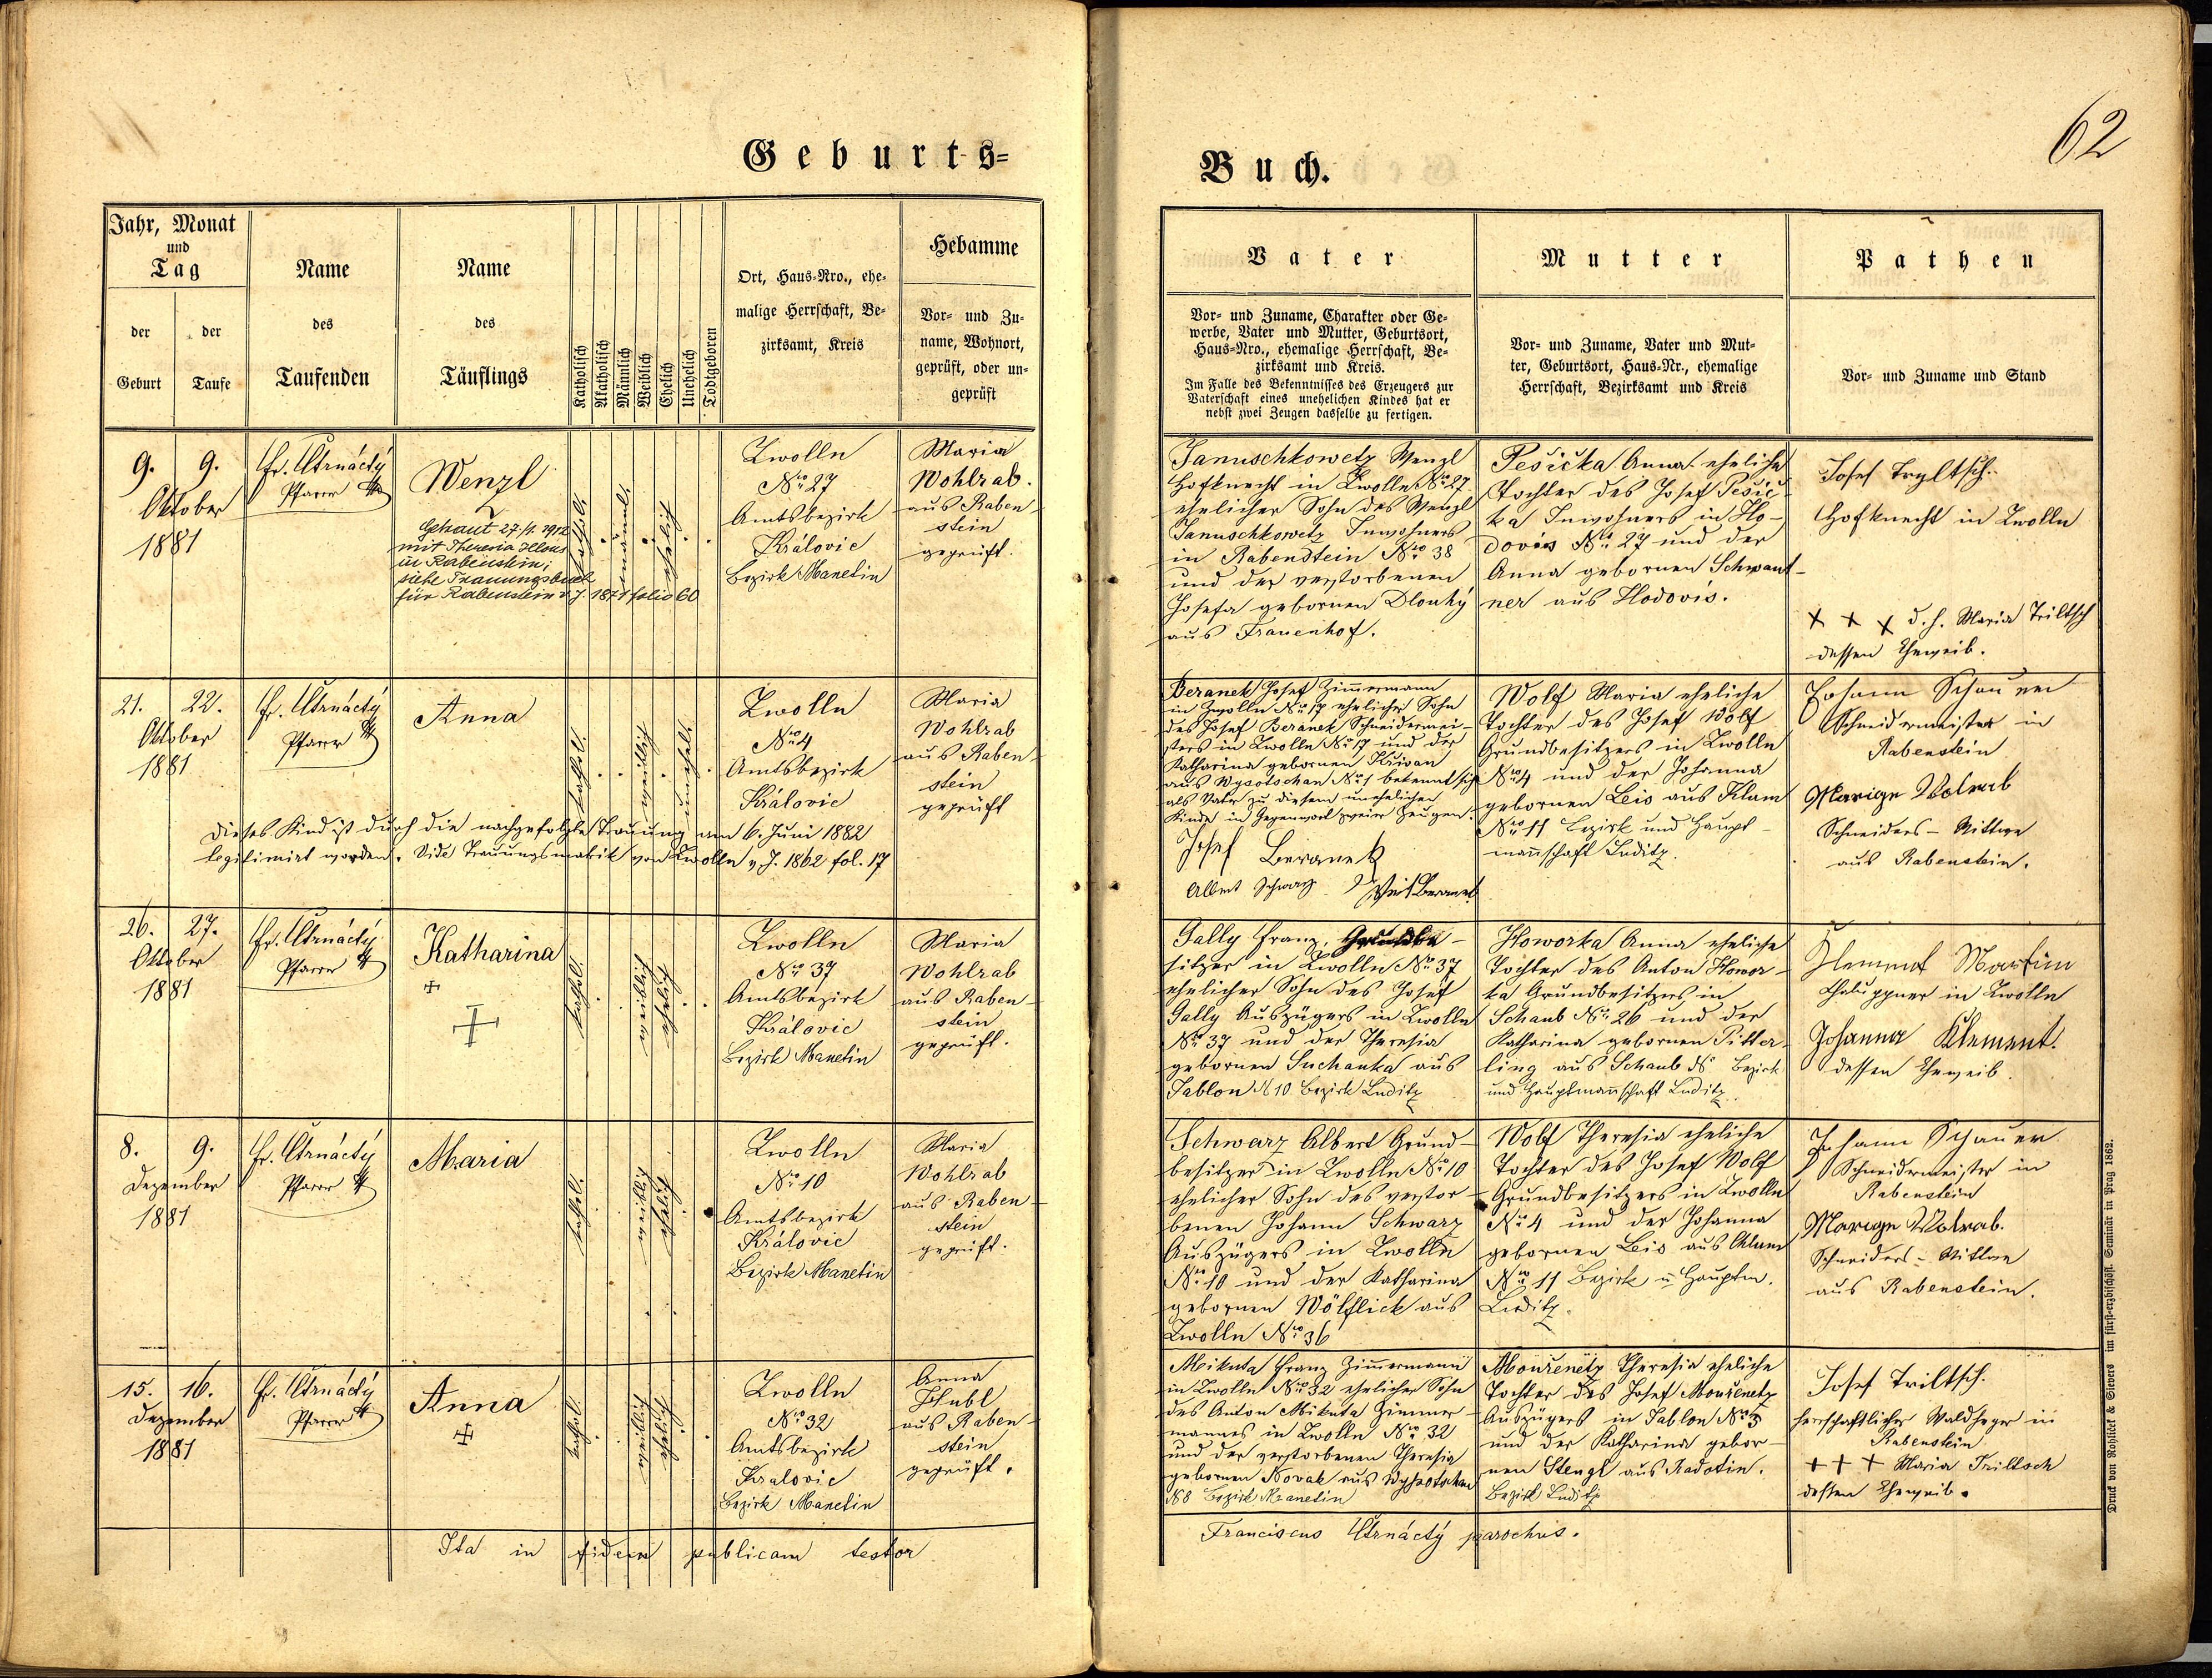 Geburts=
Buch.
62
Jahr, Monat
und
Tag
der
Geburt
der
Taufe
Name
des
Taufenden
Name
des
Täuflings
Katholisch
Akatholisch
Männlich
Weiblich
Ehelich
Unehelich
Todtgeboren
Ort, Haus-Nro., ehe-
malige Herrschaft, Be-
zirksamt, Kreis
Hebamme
Vor- und Zu-
name, Wohnort,
geprüft, oder un-
geprüft
Vater
Vor- und Zuname, Charakter oder Ge-
werbe, Vater und Mutter, Geburtsort,
Haus-Nro., ehemalige Herrschaft, Be-
zirksamt und Kreis.
Im Falle des Bekenntnisses des Erzeugers zur
Vaterschaft eines unehelichen Kindes hat er
nebst zwei Zeugen dasselbe zu fertigen.
Mutter
Vor- und Zuname, Vater und Mut-
ter, Geburtsort, Haus-Nr., ehemalige
Herrschaft, Bezirksamt und Kreis
Pathen
Vor- und Zuname und Stand
9. 9.
Oktober
1881
Fr. Čtrnáctý
Pfarrer
Wenzl
Getraut 27./1. 1912
mit Theresia
in Rabenstein;
siehe Trauungsbuch
für Rabenstein v. J. 1871 folio 60
kathol.
männl.
eheliche
Zwolln
Nro 27
Amtsbezirk
Královic
Bezirk Manetin
Maria
Wohlrab.
aus Raben-
stein
geprüft.
Januschkowetz Wenzl
Hofknecht in Zwolln Nro 27
ehelicher Sohn des Wenzl
Januschkowetz Inwohners
in Rabenstein Nro 38
und der verstorbenen
Josefa gebornen Dlouhý
aus Frauenhof.
Pešička Anna eheliche
Tochter des Josef Pešič-
ka Inwohners in Ho-
dovis No 27 und der
Anna gebornen Schwant-
ner aus Hodovis.
Josef Tryltsch.
Hofknecht in Zwolln
x x x d. h. Maria Triltsch
dessen Eheweib.
21. 22.
Oktober
1881
Fr. Čtrnáctý
Pfarrer
Anna
kathol.
weiblichen
unehel.
Zwolln
Nro 4
Amtsbezirk
Královic
Maria
Wohlrab
aus Raben-
stein
geprüft
Dieses Kind ist durch die nachgefolgte Trauung am 6. Juni 1882
legitimirt worden. Vide Trauungsmatrik von Zwolln v. J. 1862 fol. 17
Beranek Josef Zimmermann
in Zwolln Nro 17 ehelicher Sohn
des Josef Beranek Schneidermei-
sters in Zwolln No 17 und der
Katharina gebornen Křivan
aus Wysotschan No 1 bekennt sich
als Vater zu diesem unehelichen
Kinde in Gegenwart zweier Zeugen.
Josef Beranek
Albert Schwarz Veit Beranek
Wolf Maria eheliche
Tochter des Josef Wolf
Grundbesitzers in Zwolln
Nro 4 und der Johanna
gebornen Leis aus Klam
Nro 11 Bezirk und Haupt-
mannschaft Luditz.
Johann Schauer
Schneidermeister in
Rabenstein
Marign Wolrab
Schneiders-Wittwe
aus Rabenstein.
26. 27.
Oktober
1881
Fr. Čtrnáctý
Pfarrer
Katharina
kathol.
weiblichen
eheliche
Zwolln
Nro 37
Amtsbezirk
Královic
Bezirk Manetin
Maria
Wohlrab
aus Raben-
stein
geprüft.
Gally Franz, Grundbe-
sitzer in Zwolln No 37
ehelicher Sohn des Josef
Gally Auszügers in Zwolln
No 37 und der Theresia
gebornen Suchanka aus
Jablon N 10 Bezirk Luditz
Howorka Anna eheliche
Tochter des Anton Howor-
ka Grundbesitzers in
Schaub No 26 und der
Katharina gebornen Pitter-
ling aus Schaub Bezirk
und Hauptmannschaft Luditz.
Klement Martin
Chaluppner in Zwolln
Johanna Klement.
dessen Eheweib
8. 9.
Dezember
1881
Fr. Čtrnáctý
Pfarrer
Maria
kathol.
weiblichen
eheliche
Zwolln
Nro 10
Amtsbezirk
Královic
Bezirk Manetin
Maria
Wohlrab
aus Raben-
stein
geprüft.
Schwarz Albert Grund-
besitzer in Zwolln Nro 10
ehelicher Sohn des verstor-
benen Johann Schwarz
Auszügers in Zwolln
Nro 10 und der Katharina
gebornen Wölflick aus
Zwolln Nro 36
Wolf Theresia eheliche
Tochter des Josef Wolf
Grundbesitzers in Zwolln
No 4 und der Johanna
gebornen Leis aus Klam
Nro 11 Bezirk u Hauptm.
Luditz.
Johann Schauer
Schneidermeister in
Rabenstein
Marign Wolrab.
Schneiders-Wittwe
aus Rabenstein.
15. 16.
Dezember
1881
Fr. Čtrnáctý
Pfarrer
Anna
kathol.
weibliche
eheliche
Zwolln
Nro 32
Amtsbezirk
Kralovic
Bezirk Manetin
Anna
Hubl
aus Raben-
stein
geprüft.
Mikuta Franz Zimmermann
in Zwolln Nro 32 ehelicher Sohn
des Anton Mikuta Zimmer-
mannes in Zwolln Nro 32
und der verstorbenen Theresia
gebornen Novak aus Wyssotschan
N 8 Bezirk Manetin
Mouřenetz Theresia eheliche
Tochter des Josef Mouřenetz
Auszügers in Jablon Nro 3
und der Katharina gebor-
nen Stengl aus Radotin.
Bezirk Luditz
Josef Triltsch.
herrschaftlicher Waldheger in
Rabenstein
+++ Maria Triltsch
dessen Eheweib.
Ita in fidem publicam testor
Franciscus Čtrnáctý parochus.
Druck von Rohliček & Sievers im fürst-erzbischöfl. Seminär in Prag 1862.